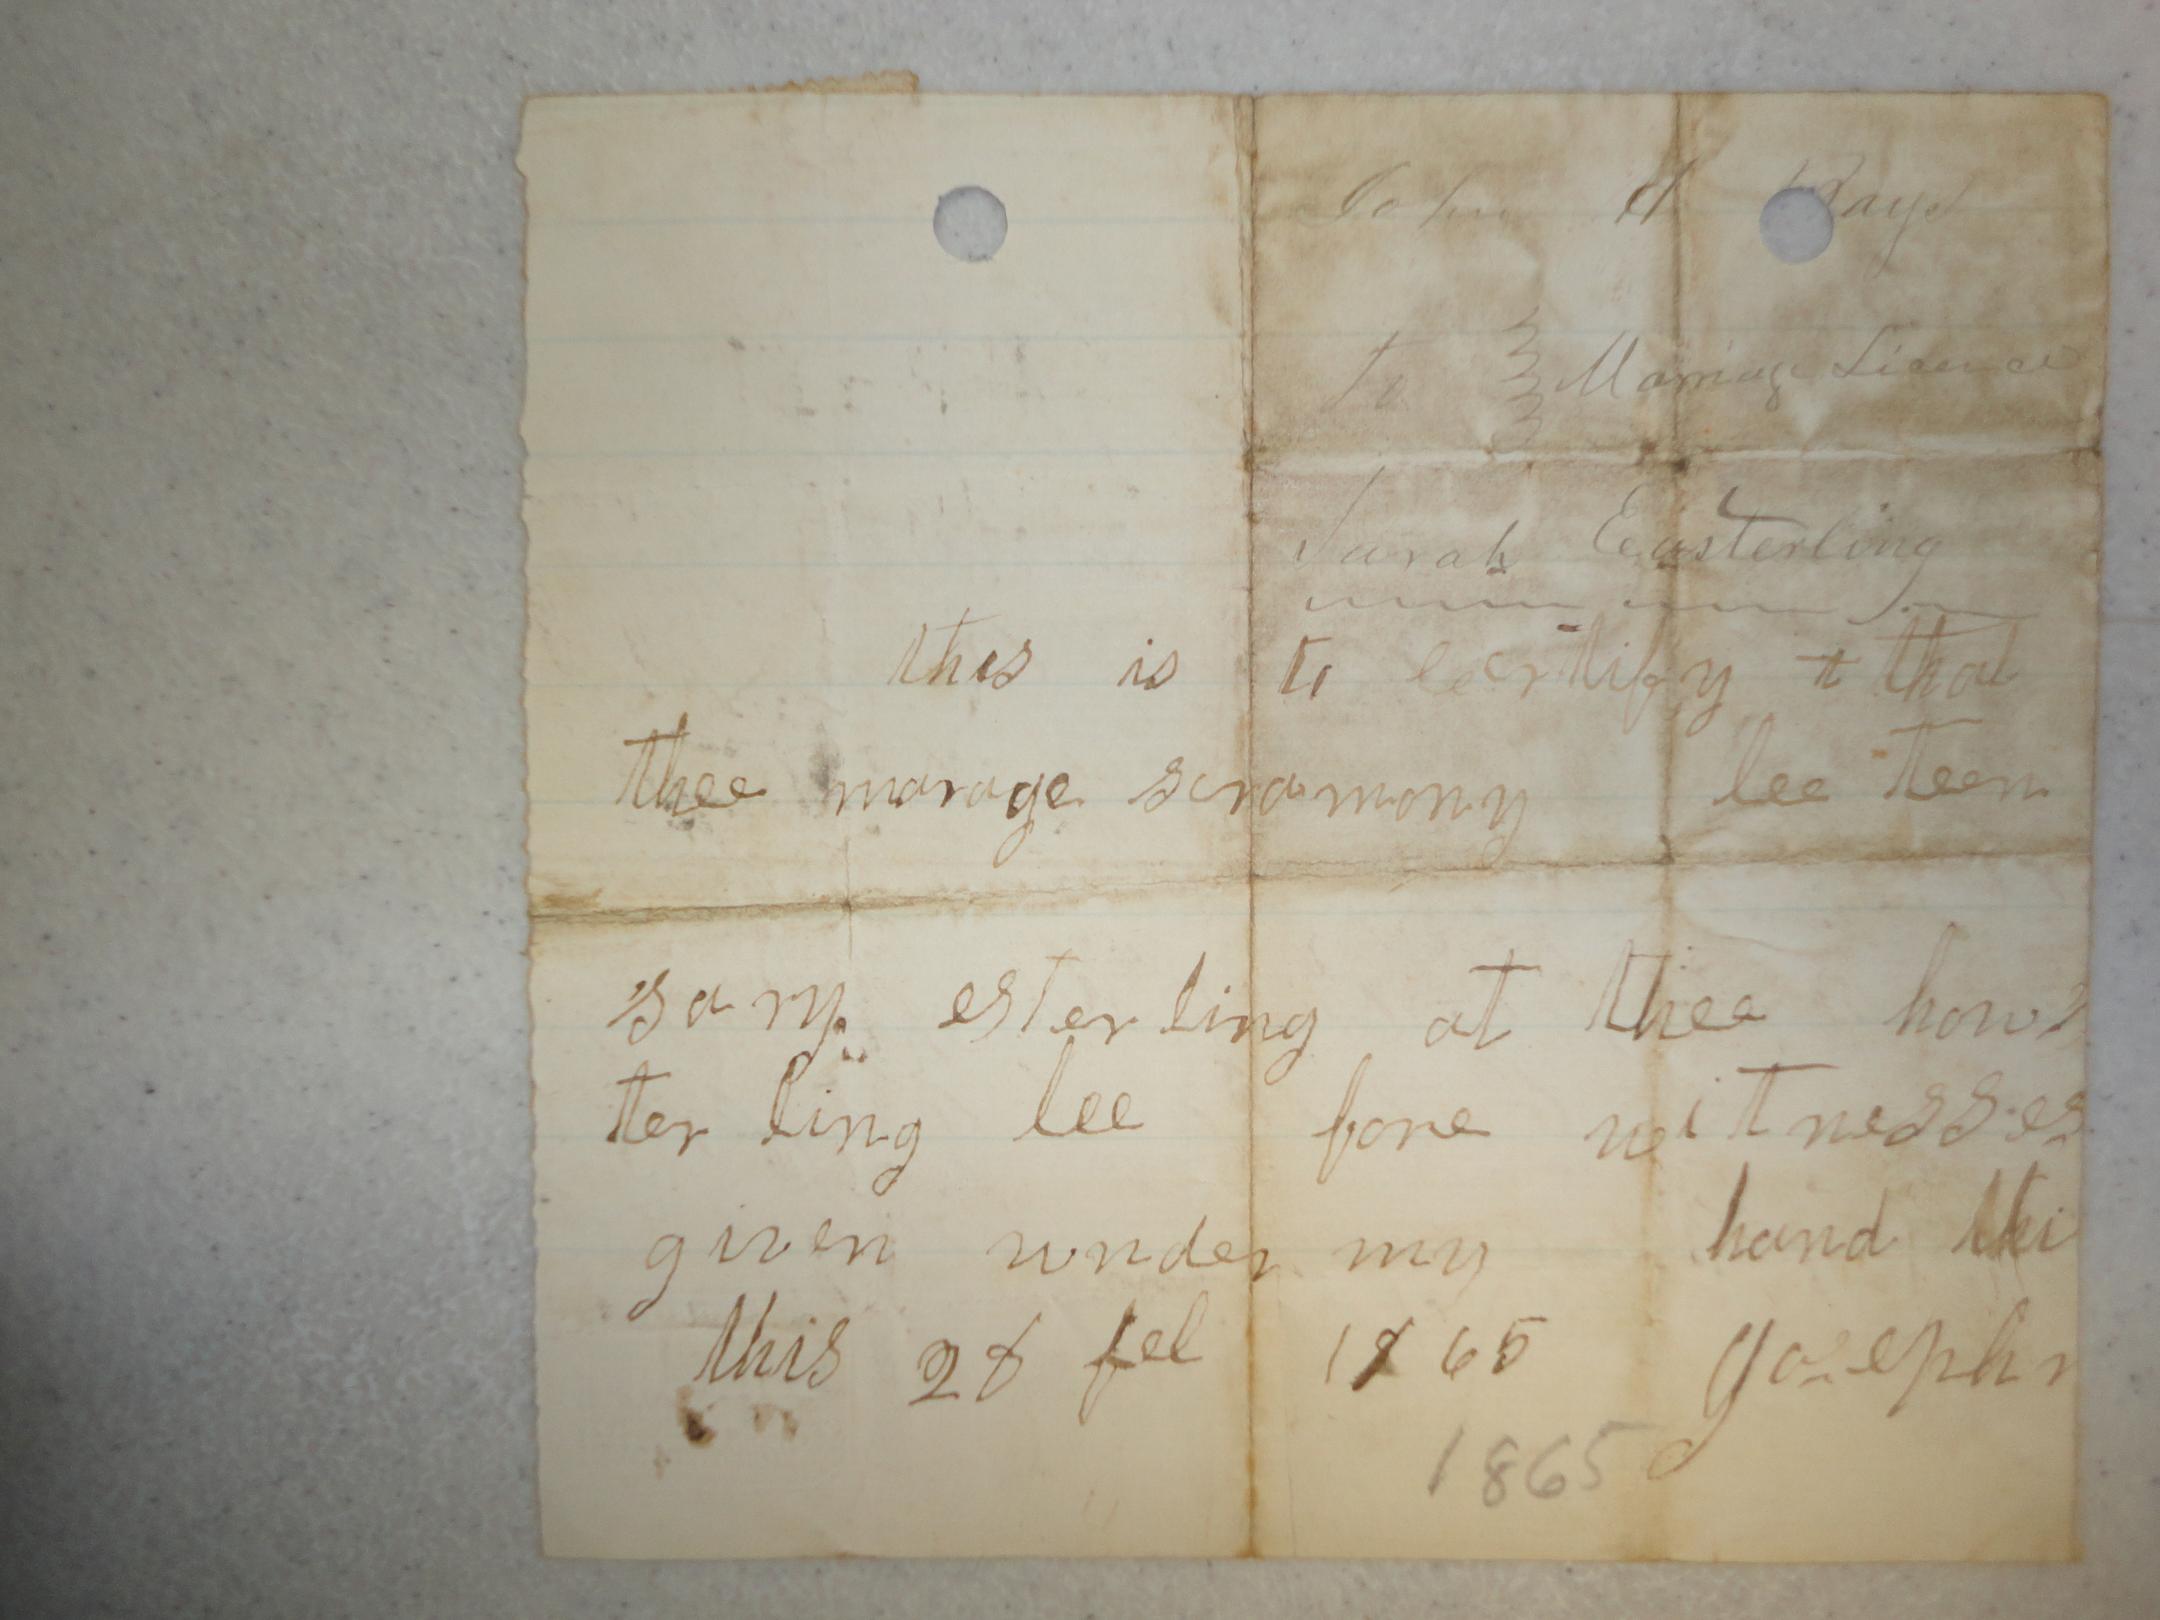 John H Bayd
To Marriage Licence
Sarah Easterling
this is to certify t that
thee marage scramony lee teen
sary esterling at thee hows
ter ling lee fore witnesses
given under my hand thi
this 28 feb 1865 Joseph
1865